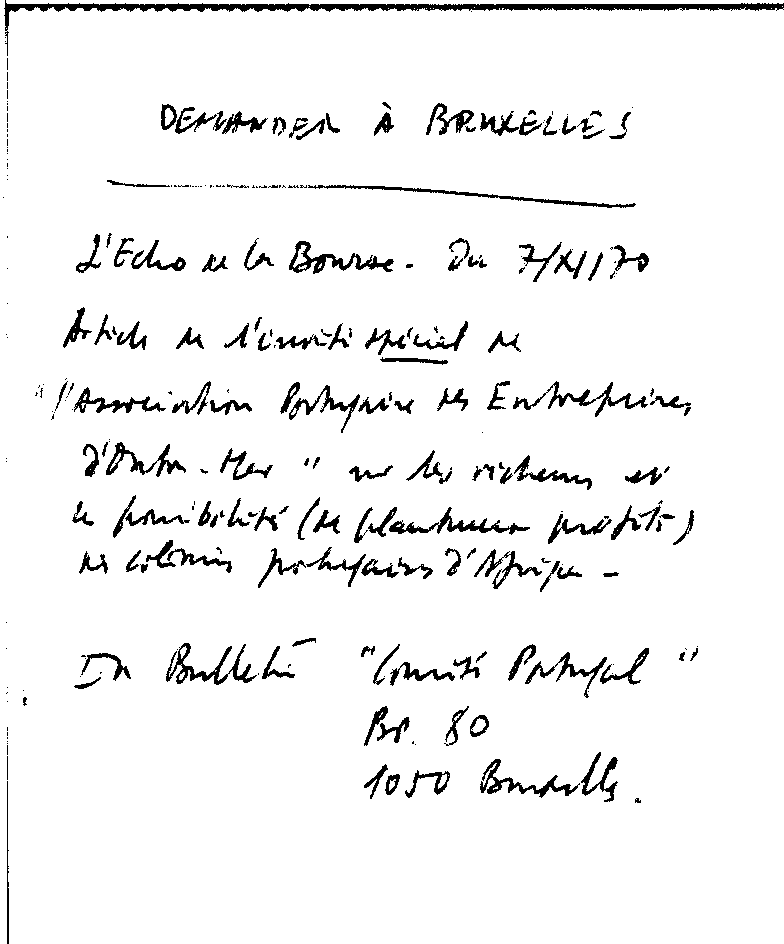 DEMANDER À BRUXELLES
L'Echo de la Bourse - Du 7/XI/70
Article de l'invité spécial de
"l'Association Portugaise des Entreprises
d'Outre-Mer" sur les richesses et
les possibilités (de plantureux profits)
des colonies portugaises d'Afrique -
In Bulletin "Comité Portugal"
BP. 80
1050 Bruxelles.